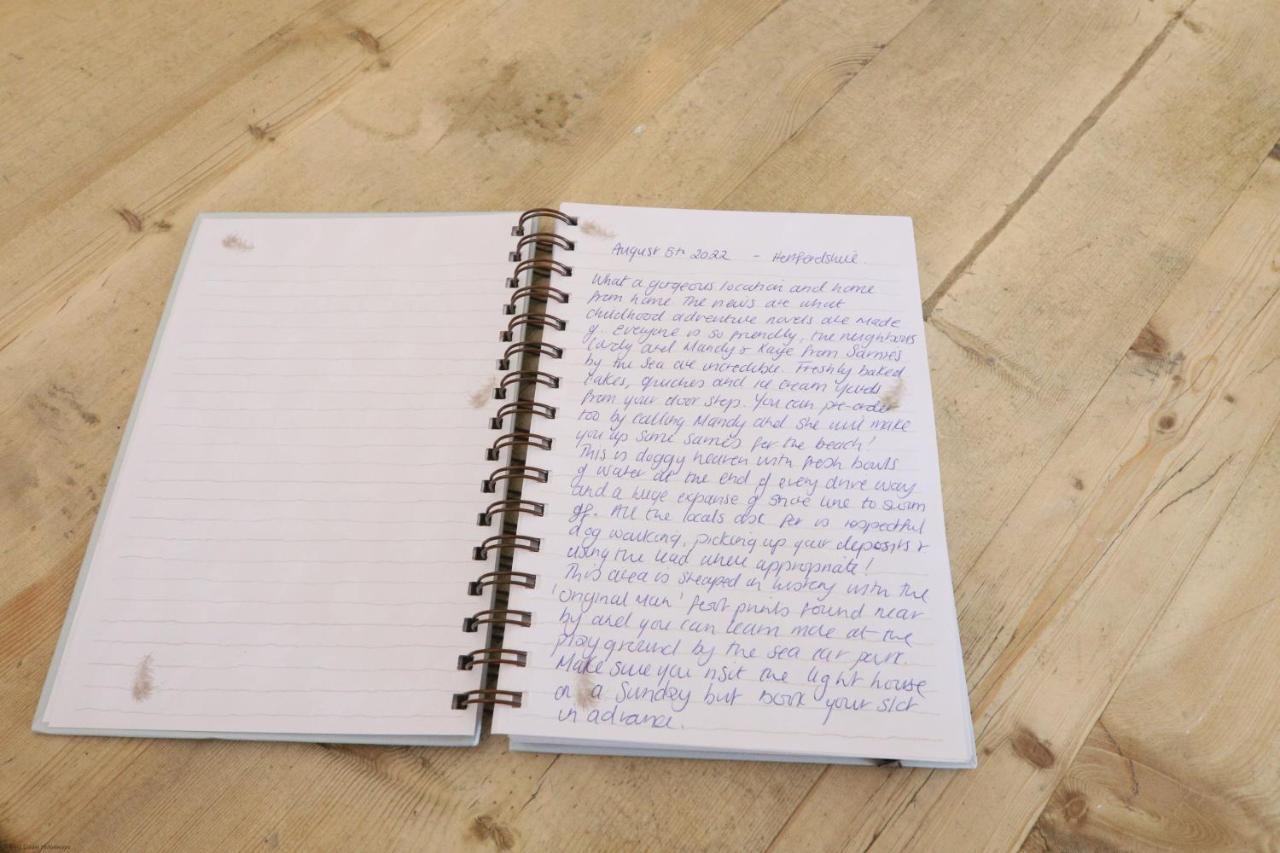 August 5th 2022 - Hertfordshire.
What a gorgeous location and home
from home. The views are what
childhood adventure novels are made
of. Everyone is so friendly, the neighbours
and Mandy & Kaye from Sarnies
by the Sea are incredible. Freshly baked
cakes, quiches and ice cream yards
from your door step. You can pre-order
too by calling Mandy and she will make
you up some sarnies for the beach!
This is doggy heaven with fresh bowls
of water at the end of every drive way
and a huge expanse of shore line to swim
off. All the locals ask for is respectful
dog walking, picking up your deposits &
using the lead where appropriate!
This area is steaped in history with the
'original man' foot prints found near
by and you can learn more at the
playground by the sea car park.
Make sure you visit the light house
on a Sunday but book your slot
in advance.